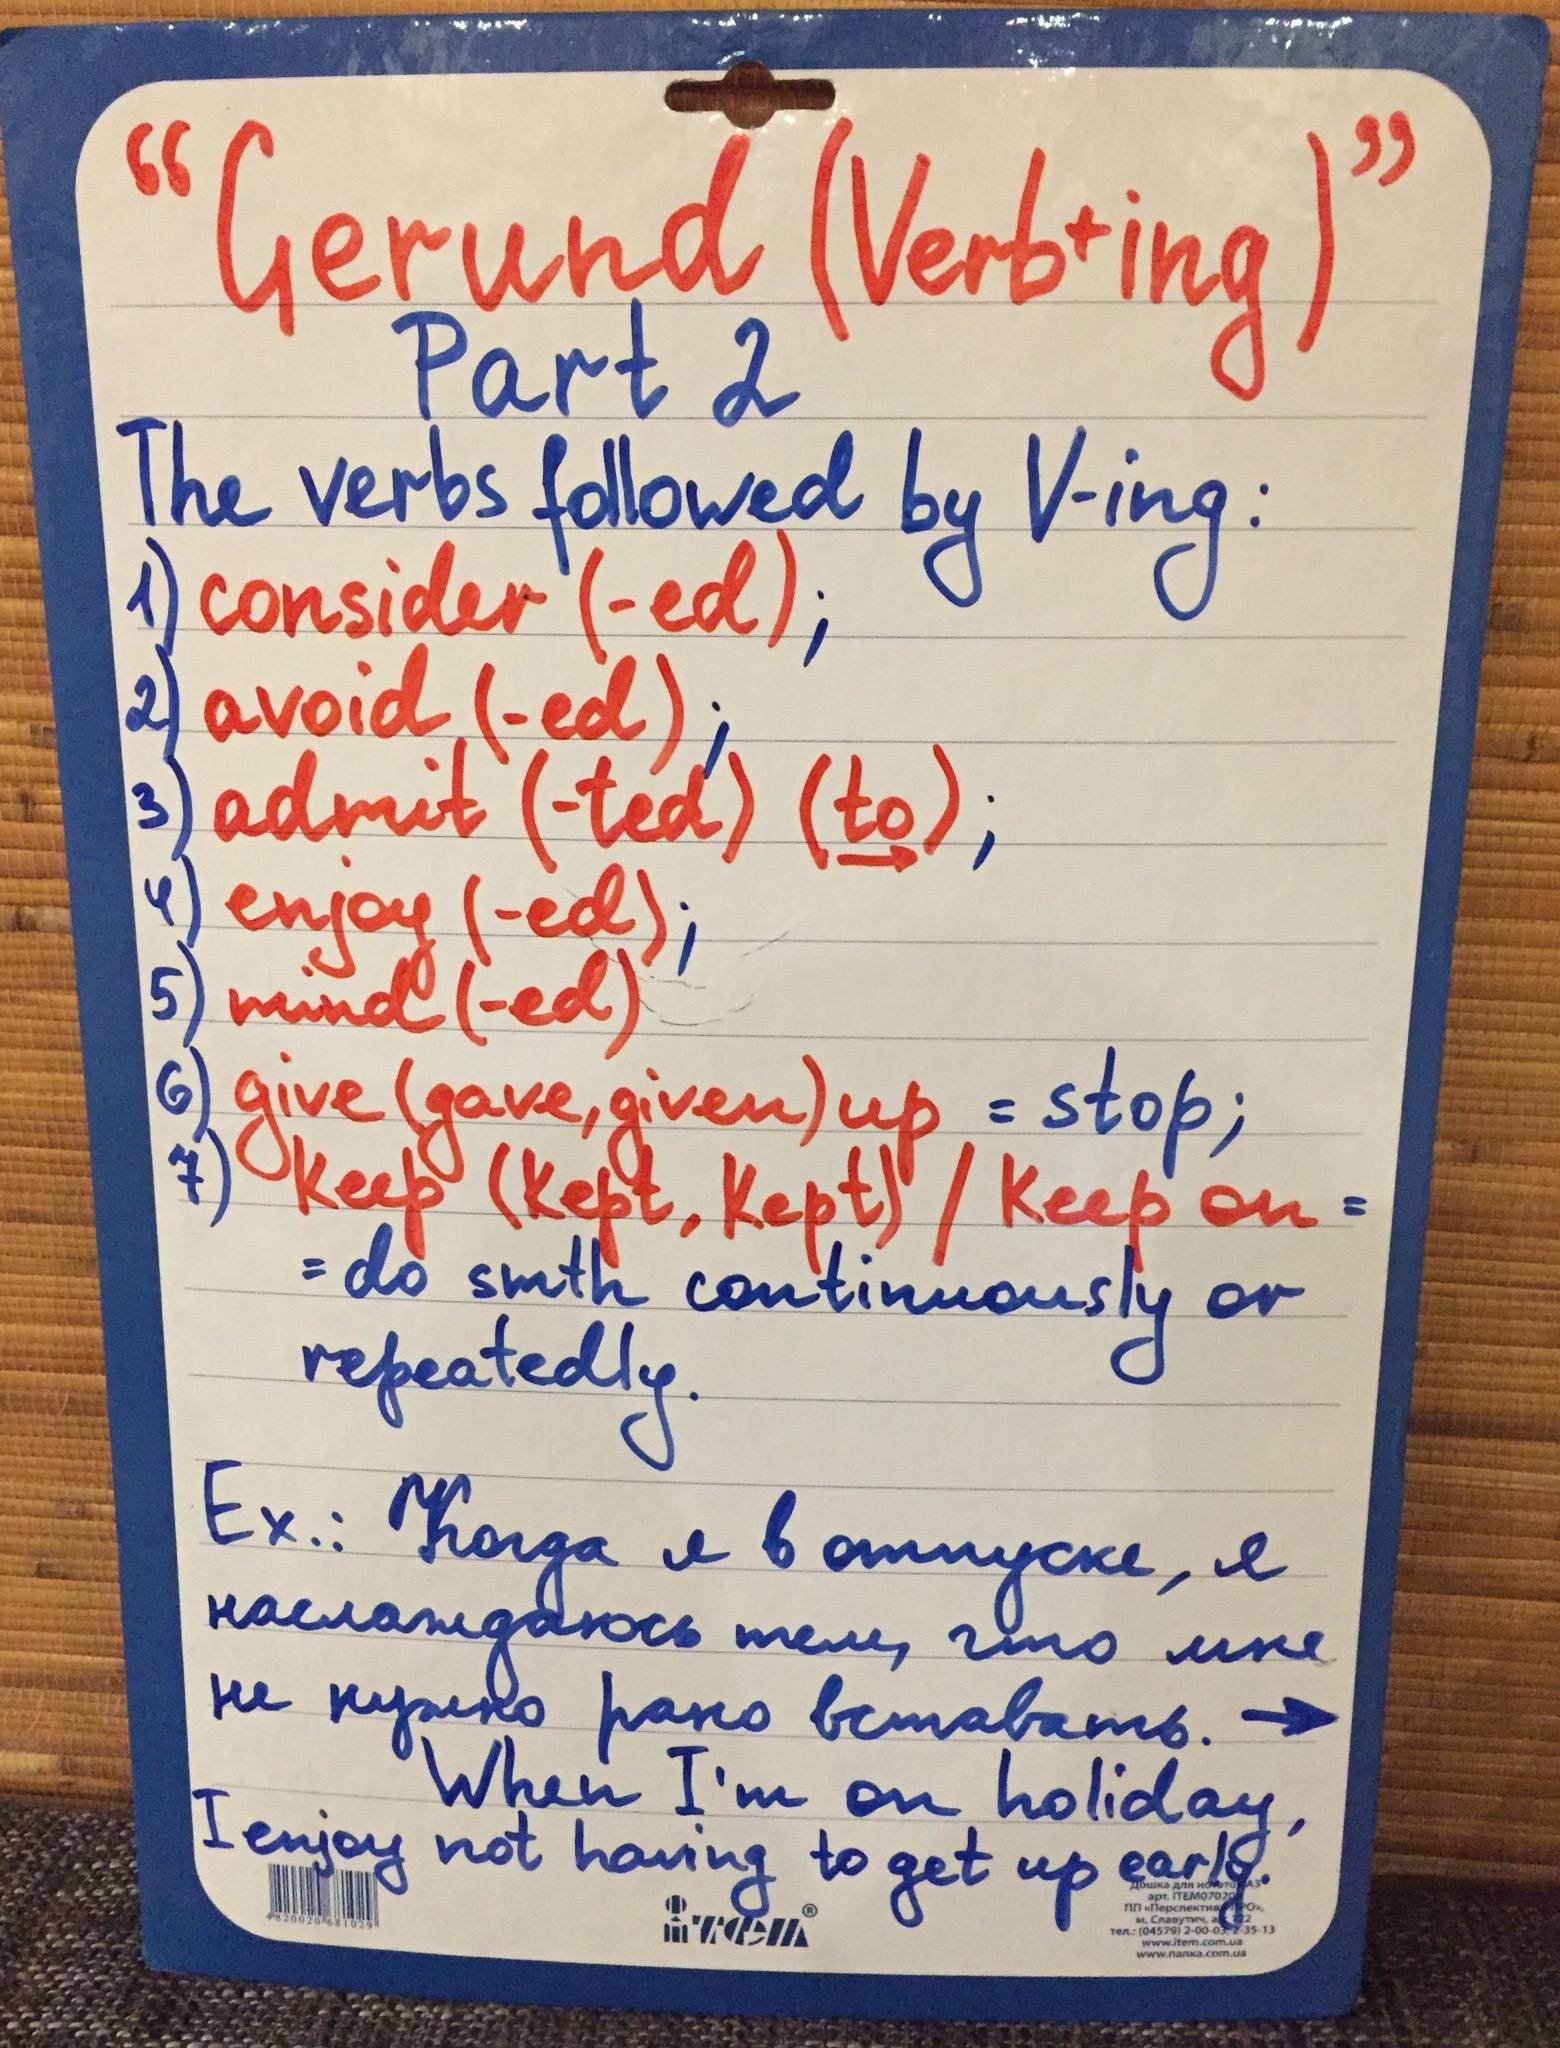 “Gerund (Verb+ing)”
Part 2
The verbs followed by V-ing:
1) consider (-ed);
2) avoid (-ed);
3) admit (-ted) (to);
4) enjoy (-ed);
5) mind (-ed)
6) give (gave, given) up = stop;
7) keep (kept, kept) / keep on =
= do smth continuously or
repeatedly.
Ex.: Когда я в отпуске, я
наслаждаюсь тем, что мне
не нужно рано вставать. →
When I'm on holiday,
I enjoy not having to get up early.
4820020681029
iтем®
Дошка для нотаток А3
арт. ITEM07020
ПП «Перспектива ПРО»,
м. Славутич, а/с 122
тел.: (04579) 2-00-03, 2-35-13
www.item.com.ua
www.папка.com.ua